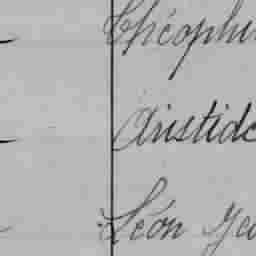 Théophi
Aristide
Léon Geo